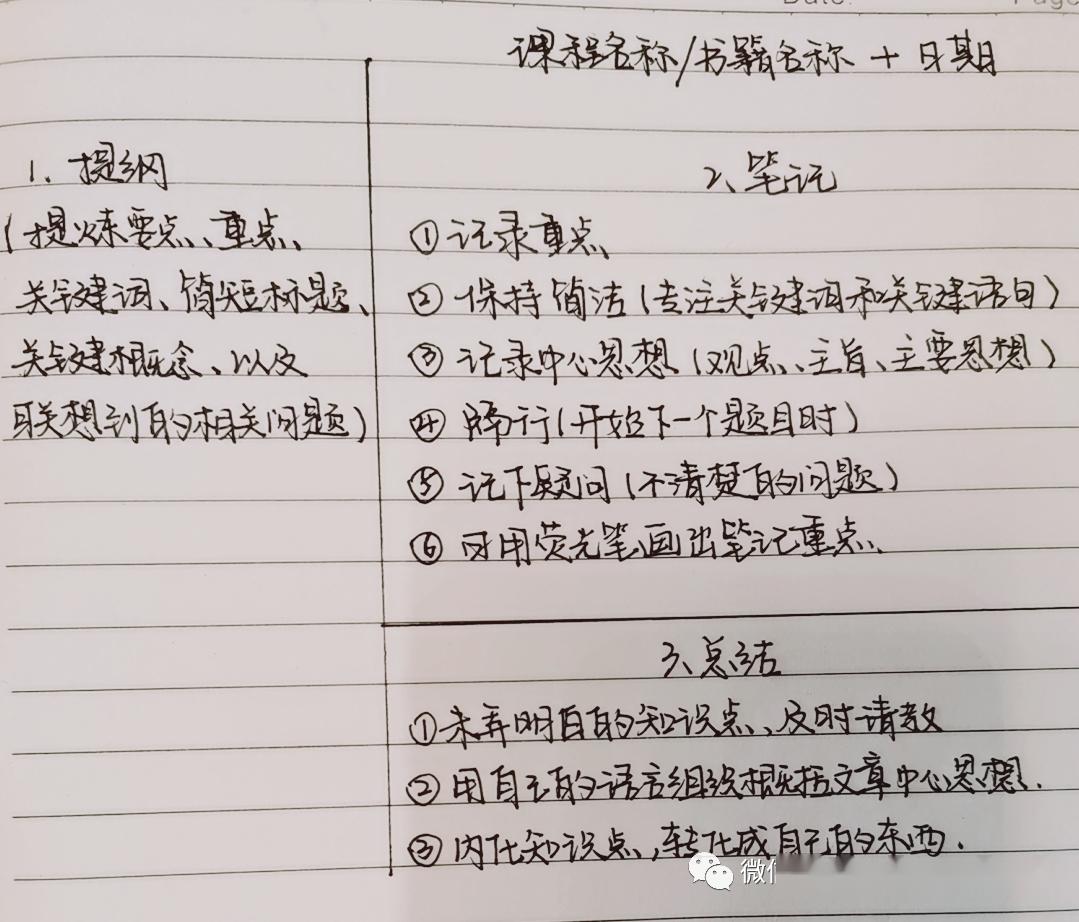 Date.
Page
课程名称/书籍名称 + 日期
1、提纲
(提炼要点、重点、
关键词、简短标题、
关键概念、以及
联想到的相关问题)
2、笔记
① 记录重点
② 保持简洁(专注关键词和关键语句)
③ 记录中心思想(观点、主旨、主要思想)
④ 隔行(开始下一个题目时)
⑤ 记下疑问(不清楚的问题)
⑥ 可用荧光笔画出笔记重点、
3、总结
① 未弄明白的知识点、及时请教
② 用自己的语言组织概括文章中心思想.
③ 内化知识点,转化成自己的东西.